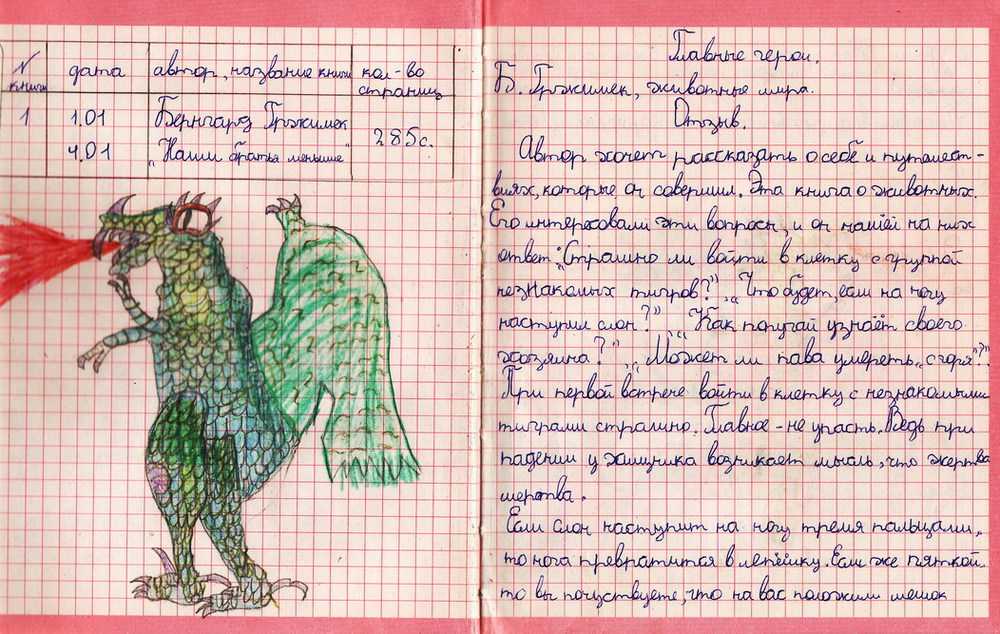 N книги дата автор, название книги кол-во страниц
1 1.01 Бернгард Гржимек 285с.
4.01 „Наши братья меньшие"
Главные герои.
Б. Гржимек, животные мира.
Отзыв.
Автор хочет рассказать о себе и путешест-
виях, которые он совершил. Эта книга о животных.
Его интересовали эти вопросы, и он нашёл на них
ответ: „Страшно ли войти в клетку с группой
незнакомых тигров?", „Что будет, если на ногу
наступил слон?", „Как попугай узнаёт своего
хозяина?", „Может ли пава умереть „с горя"?"
При первой встрече войти в клетку с незнакомыми
тиграми страшно. Главное - не упасть. Ведь при
падении у хищника возникает мысль, что жертва
мертва.
Если слон наступит на ногу тремя пальцами,
то нога превратится в лепёшку. Если же пяткой
то вы почуствуете, что на вас положили мешок